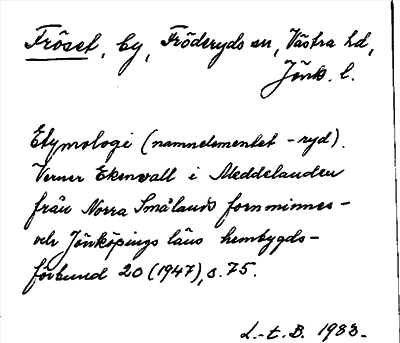 Fröset, by, Fröderyds sn, Västra hd,
Jönk. l.
Etymologi (namnelementet -ryd).
Verner Ekenvall i Meddelanden
från Norra Smålands fornminnes-
och Jönköpings läns hembygds-
förbund 20 (1947), s. 75.
L.-t. B. 1983.